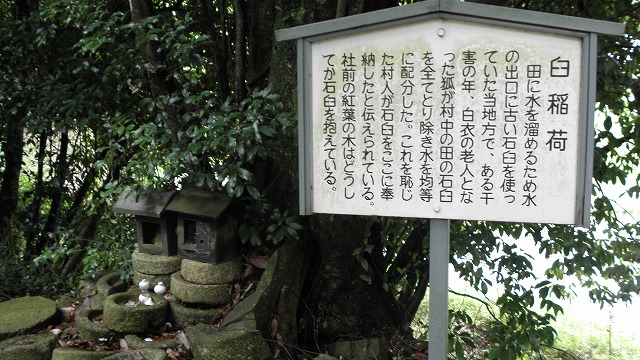 臼稲荷
田に水を溜めるため水
の出口に古い石臼を使っ
ていた当地方で、ある干
害の年、白衣の老人とな
った狐が村中の田の石臼
を全てとり除き水を均等
に配分した。これを恥じ
た村人が石臼をここに奉
納したと伝えられている。
社前の紅葉の木はどうし
てか石臼を抱えている。